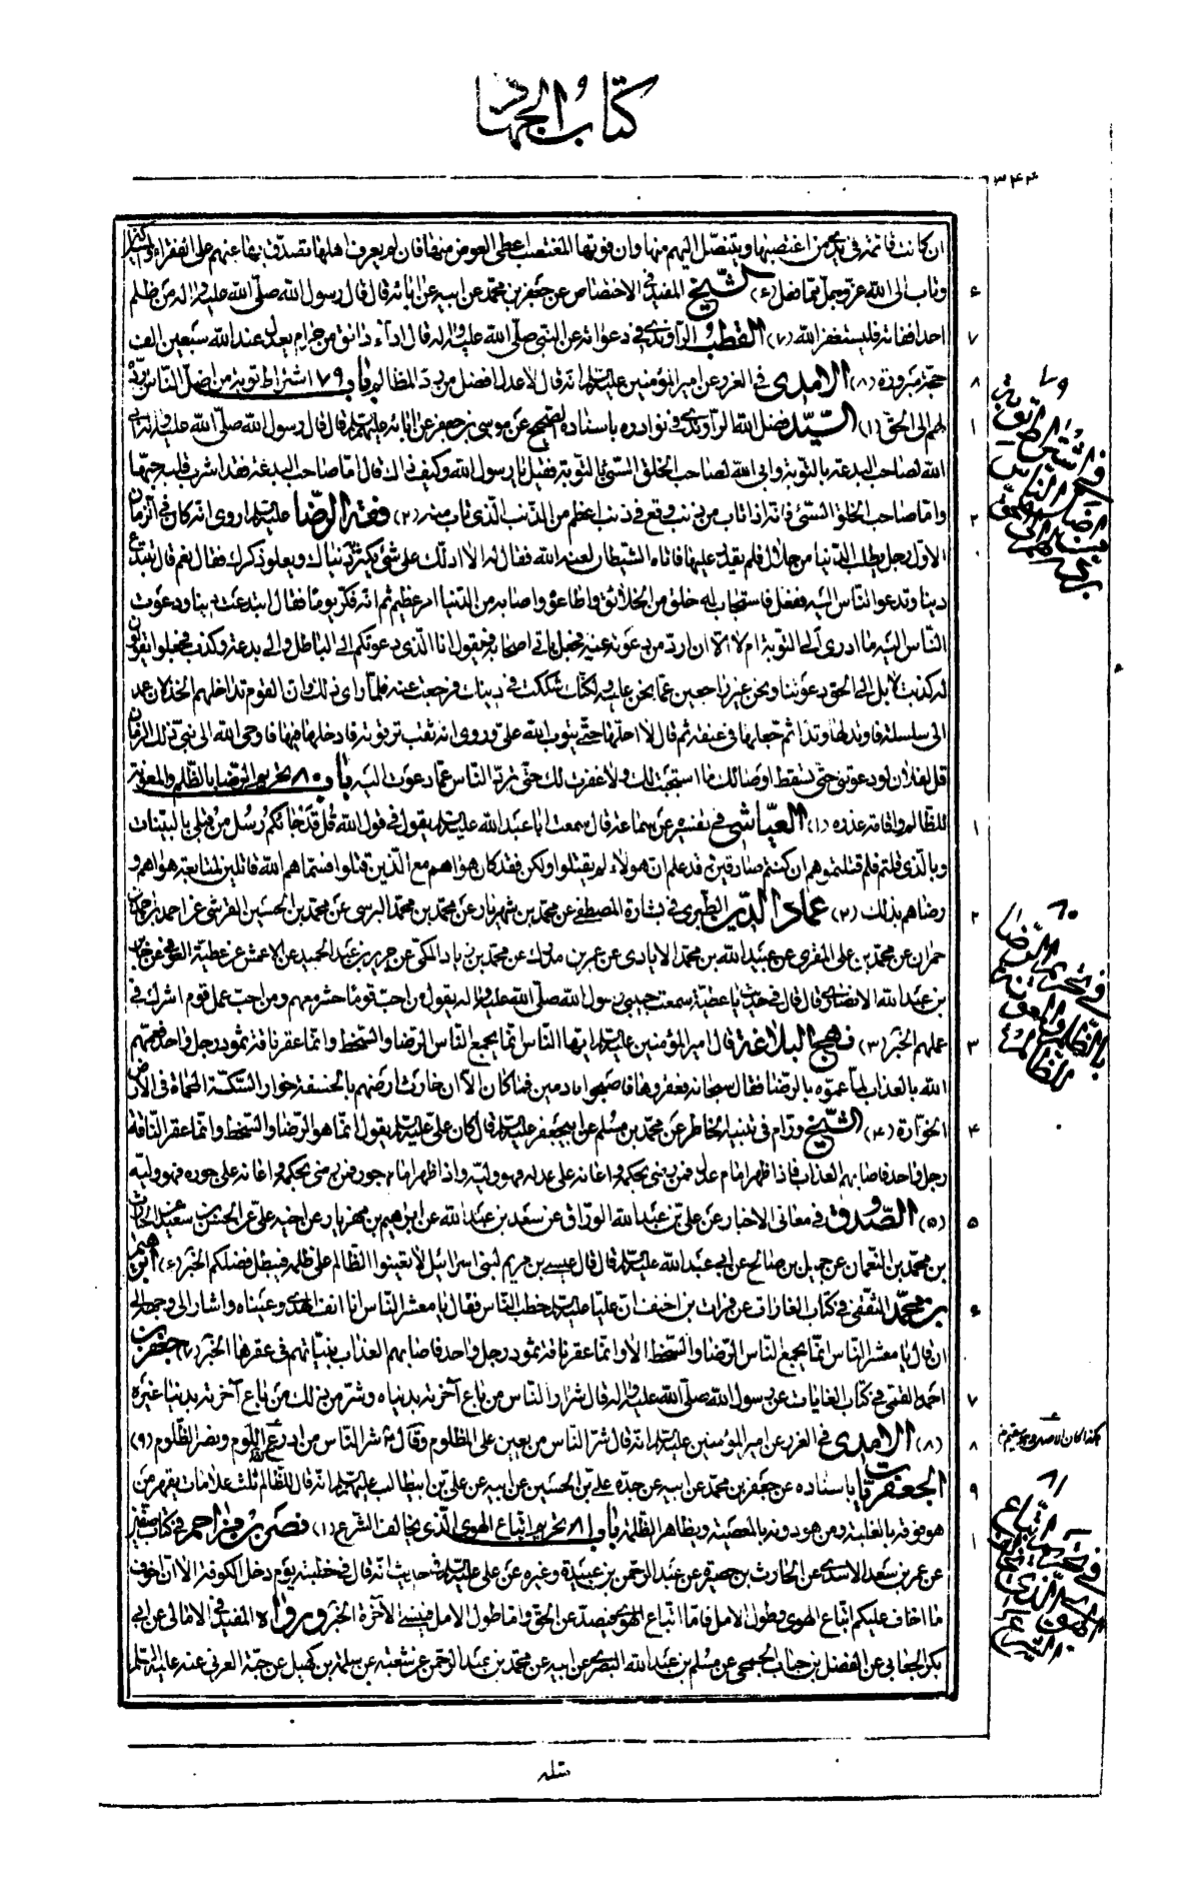 كتاب الجهاد
٣٤٤
ان كانت قائمة في يده من اغتصبها ويتنصل اليهم منها وان فوتها المغتصب اعطى العوض منها فان لم يعرف اهلها تصدق بها عنهم على الفقراء والمساكين
وتاب الى الله عز وجل مما فعل (٦) الشيخ المفيد في الاختصاص عن جعفر بن محمد عن ابيه عن ابائه قال قال رسول الله صلى الله عليه واله من ظلم
احدا ففاته فليستغفر الله (٧) القطب الراوندي في دعواته عن النبي صلى الله عليه واله قال اداء دانق من حرام يعدل عند الله سبعين الف
حجة مبرورة (٨) الامدي في الغرر عن امير المؤمنين عليه السلام انه قال لا عدل افضل من رد المظالم باب ٧٩ اشتراط توبة من اضل الناس برده
لهم الى الحق (١) السيد فضل الله الراوندي في نوادره باسناده الصحيح عن موسى بن جعفر عن ابائه عليهم السلام قال قال رسول الله صلى الله عليه واله ابى
الله لصاحب البدعة بالتوبة وابى الله لصاحب الخلق السيئ بالتوبة فقيل يا رسول الله وكيف ذلك قال اما صاحب البدعة فقد اشرب قلبه حبها
واما صاحب الخلق السيئ فانه اذا تاب من ذنب وقع في ذنب اعظم من الذنب الذي تاب منه (٢) فقه الرضا عليه السلام اروي انه كان في الزمان
الاول رجل يطلب الدنيا من حلال فلم يقدر عليها فاتاه الشيطان لعنه الله فقال له الا ادلك على شي يكثر دنياك ويعلو ذكرك فقال نعم قال تبتدع
دينا وتدعو الناس اليه ففعل فاستجاب له خلق من الخلائق واطاعوه واصابه من الدنيا امر عظيم ثم انه فكر يوما فقال ابتدعت دينا ودعوت
الناس اليه ما ادري ألي التوبة ام لا الا ان ارد من دعوته عنه فجعل ياتي اصحابه فيقول انا الذي دعوتكم الى الباطل والى بدعة وكذب فجعلوا يقولون
له كذبت لا بل الى الحق دعوتنا ونحن غير راجعين عما نحن عليه ولكنك شككت في دينك فرجعت عنه فلما راى ذلك وان القوم تداخلهم الخذلان عمد
الى سلسلة فاوتد لها وتدا ثم جعلها في عنقه ثم قال لا احلها حتى يتوب الله علي وروي انه ثقب ترقوته فادخلها فيها فاوحى الله الى نبي ذلك الزمان
قل لفلان لو دعوتني حتى تسقط اوصالك ما استجبت لك ولا غفرت لك حتى ترد الناس عما دعوت اليه باب ٨٠ تحريم الرضا بالظلم والمعونة
للظالم واقامة عذره (١) العياشي في تفسيره عن سماعة قال سمعت ابا عبد الله عليه السلام يقول في قول الله قل قد جائكم رسل من قبلي بالبينات
وبالذي قلتم فلم قتلتموهم ان كنتم صادقين قد علم ان هولاء لم يقتلوا ولكن فقد كان هواهم مع الذين قتلوا فسماهم الله قاتلين لمتابعة هواهم و
رضاهم بذلك (٢) عماد الدين الطبري في بشارة المصطفى عن محمد بن شهريار عن محمد بن محمد البرسي عن محمد بن الحسين القرشي عن احمد بن
حمران عن محمد بن علي المقري عن عبيد الله بن محمد الايادي عن عمر بن مدرك عن محمد بن زياد المكي عن جرير بن عبد الحميد عن الاعمش عن عطية العوفي عن جابر
بن عبد الله الانصاري قال قال في حديث يا عطية سمعت حبيبي رسول الله صلى الله عليه واله يقول من احب قوما حشر معهم ومن احب عمل قوم اشرك في
عملهم الخبر (٣) نهج البلاغة قال امير المؤمنين عليه السلام ايها الناس انما يجمع الناس الرضا والسخط وانما عقر ناقة ثمود رجل واحد فعمهم
الله بالعذاب لما عموه بالرضا فقال سبحانه فعقروها فاصبحوا نادمين فما كان الا ان خارت ارضهم بالخسفة خوار السكة المحماة في الارض
الخوارة (٤) الشيخ ورام في تنبيه الخاطر عن محمد بن مسلم عن ابي جعفر عليه السلام قال كان علي عليه السلام يقول انما هو الرضا والسخط وانما عقر الناقة
رجل واحد فاصابهم العذاب فاذا ظهر امام عدل فمن رضي بحكمه واعانه على عدله فهو وليه واذا ظهر امام جور فمن رضي بحكمه واعانه على جوره فهو وليه
(٥) الصدوق في معاني الاخبار عن علي بن عبد الله الوراق عن سعد بن عبد الله عن ابراهيم بن مهزيار عن اخيه علي عن الحسن بن سعيد عن الحارث
بن محمد بن النعمان عن جميل بن صالح عن ابي عبد الله عليه السلام قال قال عيسى بن مريم لبني اسرائيل لا تعينوا الظالم على ظلمه فيبطل فضلكم الخبر (٦) ابراهيم
بن محمد الثقفي في كتاب الغارات عن فرات بن احنف ان عليا عليه السلام خطب الناس فقال يا معشر الناس انا انف الهدى وعيناه واشار الى وجهه الى
ان قال يا معشر الناس انما يجمع الناس الرضا والسخط الا وانما عقر ناقة ثمود رجل واحد فاصابهم العذاب بنياتهم في عقرها الخبر (٧) جعفر بن
احمد القمي في كتاب الغايات عن رسول الله صلى الله عليه واله قال شرار الناس من باع آخرته بدنياه وشر من ذلك من باع آخرته بدنيا غيره
(٨) الامدي في الغرر عن امير المؤمنين عليه السلام انه قال شر الناس من يعين على المظلوم وقال شر الناس من ادرع اللوم ونصر الظلوم (٩)
الجعفريات باسناده عن جعفر بن محمد عن ابيه عن جده علي بن الحسين عن ابيه عن علي بن ابيطالب عليهم السلام انه قال للظالم ثلث علامات يقهر من
هو فوقه بالغلبة ومن هو دونه بالمعصية ويظاهر الظلمة باب ٨١ تحريم اتباع الهوى الذي يخالف الشرع (١) نصر بن مزاحم في كتاب صفين
عن عمر بن سعد الاسدي عن الحارث بن حصيرة عن عبد الرحمن بن عبيدة وغيره عن علي عليه السلام في حديث انه قال في خطبته يوم دخل الكوفة الا ان اخوف
ما اخاف عليكم اتباع الهوى وطول الامل فاما اتباع الهوى فيصد عن الحق واما طول الامل فينسي الآخرة الخبر ورواه المفيد في الامالي عن ابي
بكر الجعابي عن الفضل بن حباب الجمحي عن مسلم بن عبد الله البصري عن ابيه عن محمد بن عبد الرحمن عن شعبة عن سلمة بن كهيل عن حبة العرني عنه عليه السلام
٦
٧
٨
١
٢
١
٢
٣
٤
٥
٦
٧
٨
٩
١
٧٩
في اشتراط توبة
من اضل الناس
برده لهم الى الحق
٨٠
في تحريم الرضا
بالظلم والمعونة
للظالم
٨١
في تحريم اتباع
الهوى الذي يخالف
الشرع
مثله